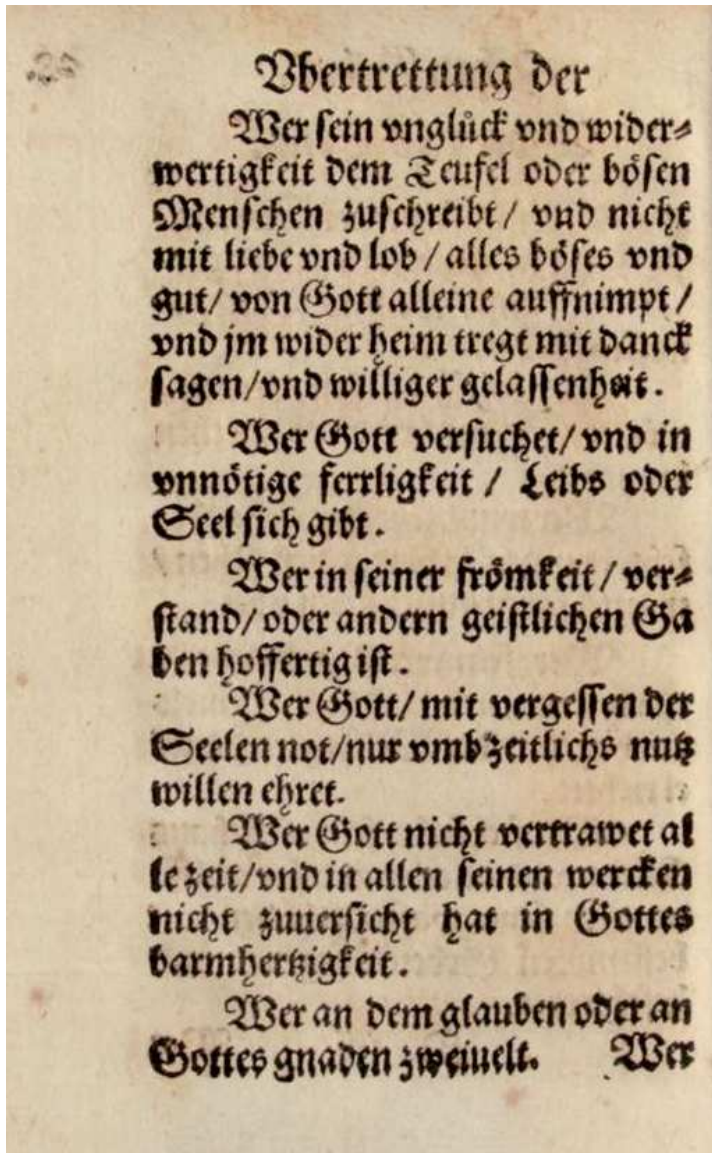 Vbertrettung der
Wer sein vnglück vnd wider⸗
wertigkeit dem Teufel oder bösen
Menschen zuschreibt / vnd nicht
mit liebe vnd lob / alles böses vnd
gut / von Gott alleine auffnimpt /
vnd jm wider heim tregt mit danck
sagen / vnd williger gelassenheit.
Wer Gott versuchet / vnd in
vnnötige ferrligkeit / Leibs oder
Seel sich gibt.
Wer in seiner frömkeit / ver⸗
stand / oder andern geistlichen Ga
ben hoffertig ist.
Wer Gott / mit vergessen der
Seelen not / nur vmb zeitlichs nutz
willen ehret.
Wer Gott nicht vertrawet al
le zeit / vnd in allen seinen wercken
nicht zuuersicht hat in Gottes
barmhertzigkeit.
Wer an dem glauben oder an
Gottes gnaden zweiuelt. Wer